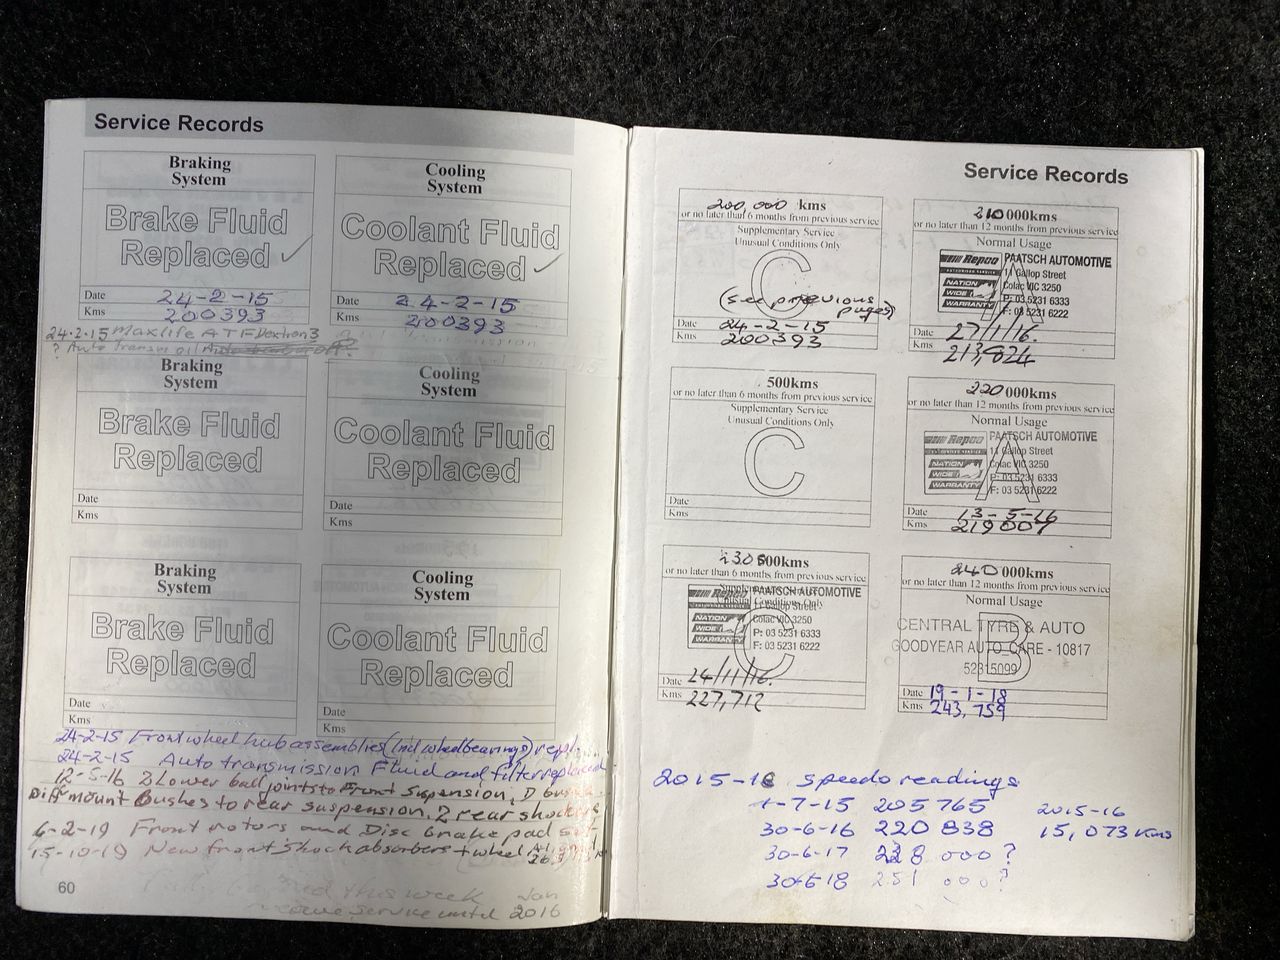 Service Records
Braking
System
Brake Fluid
Replaced ✓
Date 24-2-15
Kms 200393
Cooling
System
Coolant Fluid
Replaced ✓
Date 24-2-15
Kms 200393
24-2-15 Maxlife ATF Dextron 3
? Auto transm oil
Braking
System
Brake Fluid
Replaced
Date
Kms
Cooling
System
Coolant Fluid
Replaced
Date
Kms
Braking
System
Brake Fluid
Replaced
Date
Kms
Cooling
System
Coolant Fluid
Replaced
Date
Kms
24-2-15 Front wheel hub assemblies (incl wheel bearings) repl
24-2-15 Auto transmission Fluid and filter replaced
12-5-16 2 Lower ball joints to Front Suspension, D
Diff mount Bushes to rear suspension, 2 rear shockers
6-2-19 Front rotors and Disc brake pad set
15-10-19 New front shock absorbers + wheel
60
this week Jan
service until 2016
Service Records
200,000 kms
or no later than 6 months from previous service
Supplementary Service
Unusual Conditions Only
C
(see previous
pages)
Date 24-2-15
Kms 200393
210 000kms
or no later than 12 months from previous service
Normal Usage
A
Repco
AUTHORISED SERVICE
NATION
WIDE
WARRANTY
PAATSCH AUTOMOTIVE
11 Gallop Street
Colac VIC 3250
P: 03 5231 6333
F: 03 5231 6222
Date 27/1/16.
Kms 213,824
500kms
or no later than 6 months from previous service
Supplementary Service
Unusual Conditions Only
C
Date
Kms
220 000kms
or no later than 12 months from previous service
Normal Usage
A
Repco
AUTHORISED SERVICE
NATION
WIDE
WARRANTY
PAATSCH AUTOMOTIVE
11 Gallop Street
Colac VIC 3250
P: 03 5231 6333
F: 03 5231 6222
Date 13-5-16
Kms 219007
230 500kms
or no later than 6 months from previous service
Supplementary Service
Unusual Conditions Only
C
Repco
AUTHORISED SERVICE
NATION
WIDE
WARRANTY
PAATSCH AUTOMOTIVE
11 Gallop Street
Colac VIC 3250
P: 03 5231 6333
F: 03 5231 6222
Date 24/11/16.
Kms 227,712
240 000kms
or no later than 12 months from previous service
Normal Usage
B
CENTRAL TYRE & AUTO
GOODYEAR AUTO CARE - 10817
52315099
Date 19-1-18
Kms 243,759
2015-16 speedo readings
1-7-15 205765
30-6-16 220838
2015-16
15,073 Kms
30-6-17 228 000?
30-6-18 251 000?